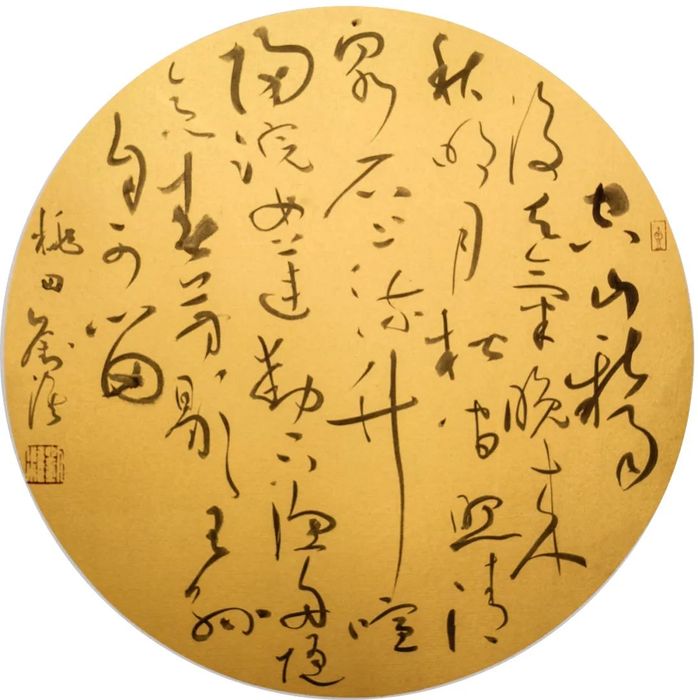 空山新雨
後天氣晚來
秋明月松間照清
泉石上流竹喧
歸浣女蓮動下漁舟隨
意春芳歇王孫
自可留